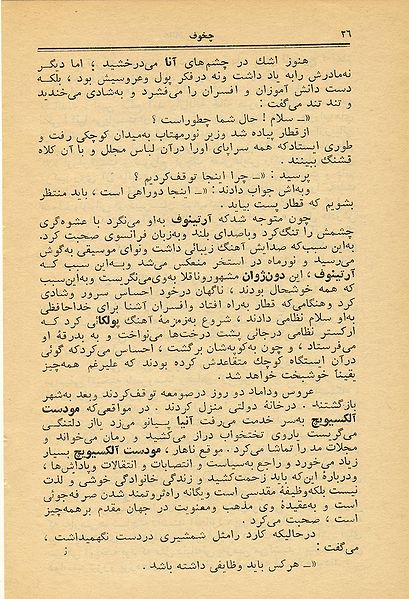 ۳۶
چخوف
هنوز اشك در چشم‌های آنا می‌درخشید؛ اما دیگر
نه‌مادرش رابه یاد داشت ونه درفکر پول وعروسیش بود، بلکه
دست دانش آموزان و افسران را می‌فشرد و به‌شادی می‌خندید
و تند تند می‌گفت:
«ــ سلام! حال شما چطوراست؟
ازقطار پیاده شد وزیر نورمهتاب به‌میدان کوچکی رفت و
طوری ایستادکه همه سراپای اورا درآن لباس مجلل و با آن کلاه
قشنگ ببینند.
پرسید: «ــ چرا اینجا توقف‌کردیم؟
وبه‌اش جواب دادند: «ــ اینجا دوراهی است، باید منتظر
بشویم که قطار پست بیاید.
چون متوجه شدکه آرتینوف به‌او می‌نگرد با عشوه‌گری
چشمش را تنگ‌کرد وباصدای بلند وبه‌زبان فرانسوی صحبت کرد.
به‌این سبب‌که صدایش آهنگ زیبائی داشت ونوای موسیقی به‌گوش
می‌رسید و نورماه در استخر منعکس می‌شد وبه‌این سبب که
آرتینوف، این دون‌ژوان مشهوروناقلا به‌وی‌می‌نگریست وبه‌این‌سبب
که همه خوشحال بودند، ناگهان درخود احساس سرور وشادی
کرد وهنگامی‌که قطار به‌راه افتاد وافسران آشنا برای خداحافظی
به‌او سلام نظامی دادند، شروع به‌زمزمهٔ آهنگ پولکائی کرد کـه
ارکستر نظامی درجائی پشت درخت‌ها می‌نواخت و به بدرقهٔ او
می‌فرستاد، و چون به‌کوپه‌شان برگشت، احساس می‌کردکه گوئی
درآن ایستگاه کوچك متقاعدش کرده بودند که علیرغم همه‌چیز
یقیناً خوشبخت خواهد شد.
عروس وداماد دو روز درصومعه توقف‌کردند وبعد به‌شهر
بازگشتند. درخانهٔ دولتی منزل کردند. در مواقعی‌که مودست
آلکسیویچ به‌سر خدمت می‌رفت آنیا پیانو می‌زد یااز دلتنگی
می‌گریست یاروی تختخواب دراز می‌کشید و رمان می‌خواند و
مجلات مد را تماشا می‌کرد. موقع ناهار، مودست آلکسیویچ بسیار
زیاد می‌خورد و راجع به‌سیاست و انتصابات و انتقالات وپاداش‌ها،
ودربارهٔ این‌که باید زحمت‌کشید و زندگی خانوادگی خوشی و لذت
نیست بلکه‌وظیفهٔ مقدسی است ویگانه راه‌ثروتمند شدن صرفه‌جوئی
است و به‌عقیدهٔ وی مذهب ومعنویت در جهان مقدم برهمه‌چیز
است، صحبت می‌کرد.
درحالیکه کارد رامثل شمشیری دردست نگهمیداشت،
می‌گفت:
«ــ هرکس باید وظایفی داشته باشد.